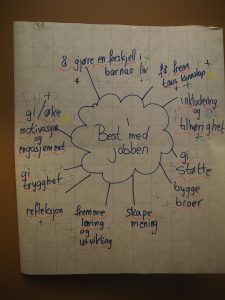 å gjøre en forskjell i
barnas liv
få frem
taus kunnskap
inkludering
og
tilhørighet
gi
støtte
bygge
broer
skape
mening
fremme
læring
og
utvikling
refleksjon
gi
trygghet
gi/øke
motivasjon
og
engasjement
Best med
jobben